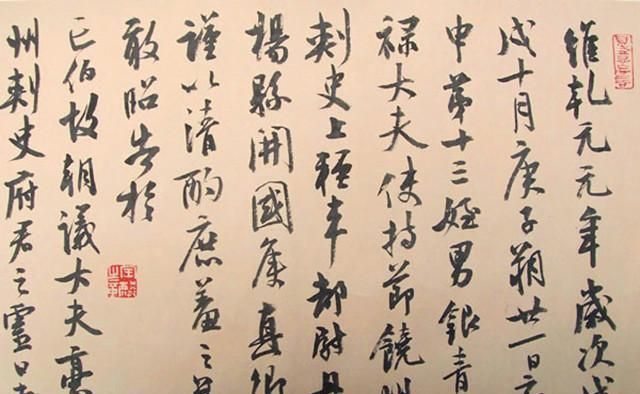 維乾元元年歲次
戊十月庚子朔廿一日
申第十三姪男銀青
祿大夫使持節饒州
刺史上輕車都尉丹
楊縣開國侯真卿
謹以清酌庶羞之
敢昭告於
亡伯故朝議大夫豪
州刺史府君之靈曰